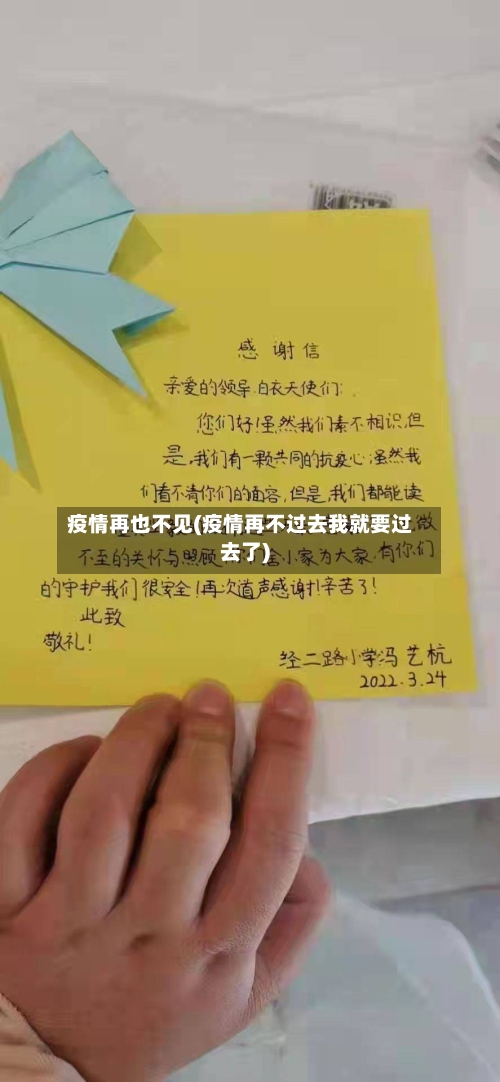 感谢信
亲爱的领导、白衣天使们:
您们好!虽然我们素不相识,但
是,我们有一颗共同的抗疫心,虽然我
们看不清你们的面容,但是,我们都能读
疫情再也不见(疫情再不过去我就要过
去了)
微
不至的关怀与照顾
小家为大家,有你们
的守护我们很安全!再次道声感谢!辛苦了!
此致
敬礼!
经二路小学冯艺杭
2022.3.24